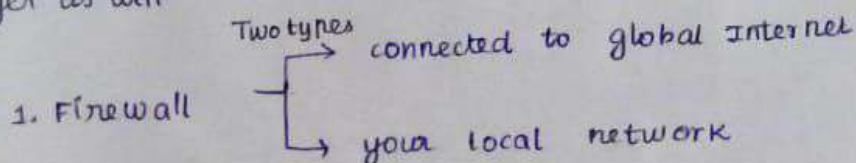 Two types
connected to global Internet
1. Firewall
your local network